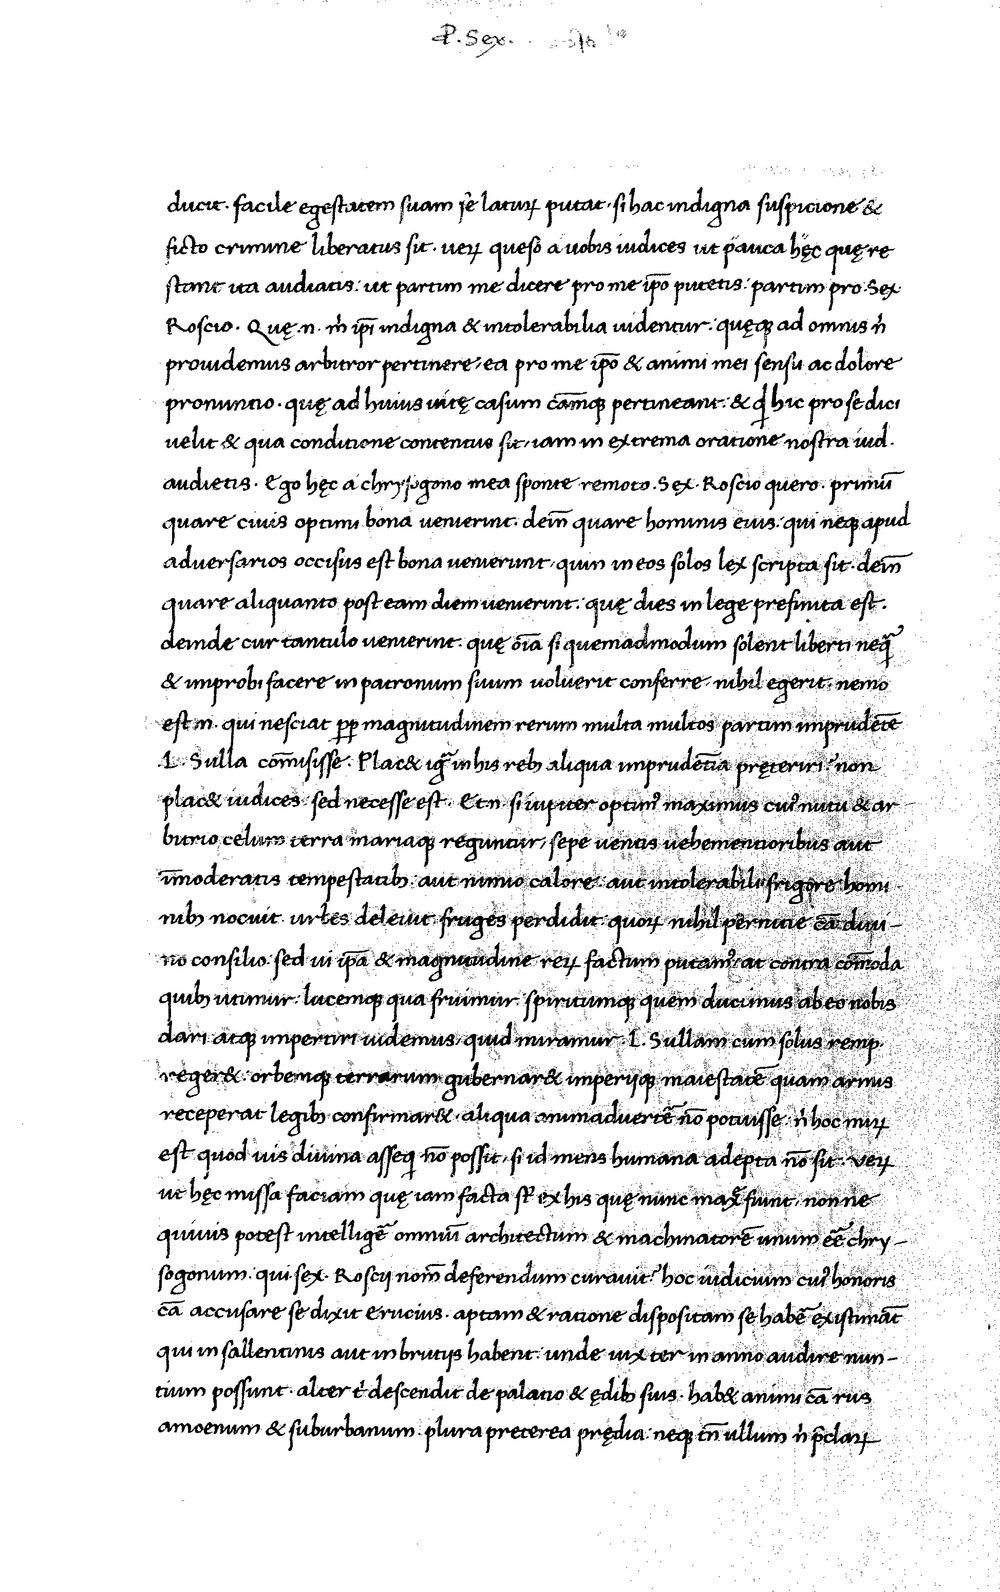 P. Sex.
ducit. facile egestatem suam se᷑ laturꝝ putat. si hac indigna suspicione &
ficto crimine liberatus sit. ueꝝ queso a uobis iudices ut pauca hęc quę re
stant ita audiatis: ut partim me dicere pro me ip̄o putetis: partim pro Sex
Roscio. Quę.n. m̀ ip̄i indigna & intolerabilia uidentur: quęqꝫ ad omnis ǹ
prouidemus arbitror pertinere, ea pro me ip̄o & animi mei sensu ac dolore
pronuntio. quę ad huius uitę casum cām̄qꝫ pertineant: & qd̄ hic pro se dici
uelit & qua conditione contentus sit, iam in extrema oratione nostra iud.
audietis. Ego hęc a chrysogono mea sponte remoto Sex. Roscio quero. primū
quare ciuis optimi bona uenierint: dein̄ quare hominis eius: qui neqꝫ apud
adversarios occisus est bona uenierunt, quin in eos solos lex scripta sit. dein̄
quare aliquanto post eam diem uenierint: quę dies in lege prefinita est.
deinde cur tantulo uenierint. quę oīa si quemadmodum solent liberti neq̄ꝫ
& improbi facere in patronum suum uoluerit conferre, nihil egerit. nemo
est.n. qui nesciat ꝓp magnitudinem rerum multa multos partim imprudēte
L. Sulla com̄isisse. Plac& igr̄ in his rebꝫ aliqua imprudētia pręteriri? non
plac& iudices. sed necesse est. Et.n. si iupiter optimꝰ maximus cuiꝰ nutu & ar
bitrio celum terra mariaqꝫ reguntur, sepe uentis uehementioribus aut
īmoderatis tempestatibꝫ. aut nimio calore: aut intolerabili frigore homi
nibꝫ nocuit. urbes deleuit. fruges perdidit. quoꝝ nihil pernitie cā diui-
no consilio. sed ui ip̄a & magnitudine reꝝ factum putamꝰ. at contra com̄oda
quibꝫ utimur. lucemqꝫ qua fruimur spiritumqꝫ quem ducimus ab eo nobis
dari atqꝫ impertiri uidemus. quid miramur. L. Sullam cum solus remp.
reger&. orbemqꝫ terrarum gubernar& imperijqꝫ maiestatē quam armis
receperat legibꝫ confirmar&. aliqua animadvertē nō potuisse. ǹ hoc miꝝ
est quod uis diuina asseqꝫ nō possit, si id mens humana adepta nō sit. Veꝝ
ut hęc missa faciam quę iam facta st̄. ex his quę nunc max̄ fiunt, nonne
quiuis potest intelligē omniū architectum & machinatorē unum eē chry-
sogonum. qui sex. Roscij nom̄ deferendum curauit? hoc iudicium cuiꝰ honoris
cā accusare se dixit Erucius. aptam & ratione dispositam se habē existimāt
qui in sallentinis aut in brutijs habent. unde uix ter in anno audire nun-
tium possunt. alter t̀ descendit de palatio & ędibꝫ suis. hab& animi cā rus
amoenum & suburbanum. plura preterea prędia. neqꝫ tn̄ ullum ǹ p̄claꝝ